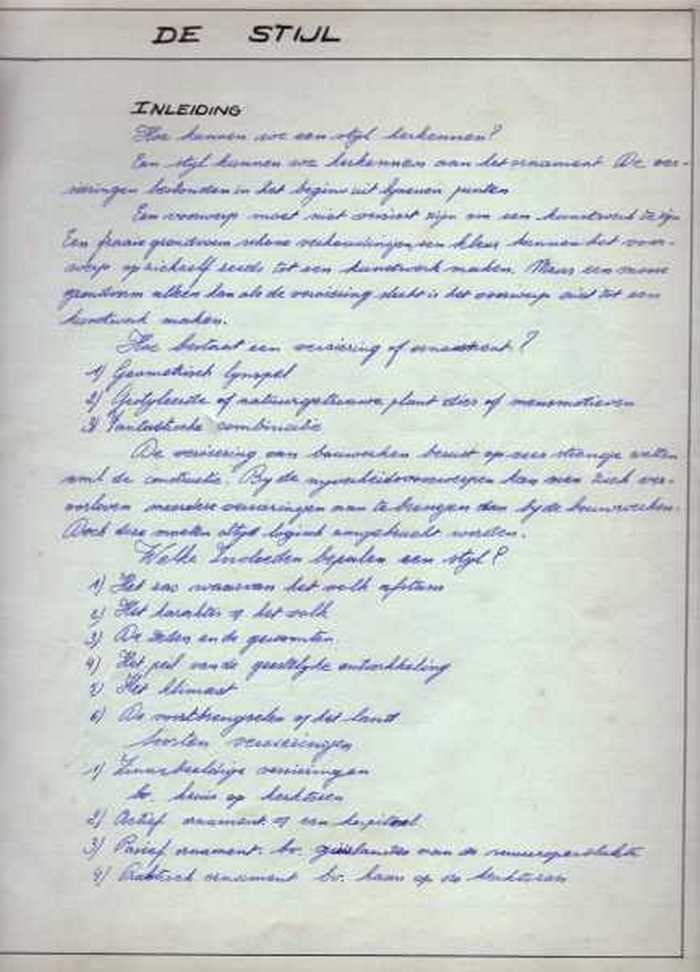 DE STIJL
INLEIDING
Hoe kunnen we een styl herkennen?
Een styl kunnen we herkennen aan het ornament De ver-
sieringen bestonden in het begin uit lynen en punten
Een voorwerp moet niet versiert zijn om een kunstwerk te zijn
Een fraaie grondvorm schone verhoudingen een kleur kunnen het voor-
werp op zichzelf reeds tot een kunstwerk maken. Maar een mooie
grondvorm alleen kan als de versiering slecht is het voorwerp niet tot een
kunstwerk maken.
Hoe bestaat een versiering of ornament?
1) Geometrisch lynspel
2) Gestyleerde of natuurgetrouwe plant dier of mensmotieven
3) Fantastische combinatie
De versiering van bouwwerken berust op zeer strenge wetten
de constructie. By de nyverheidsvoorwerpen kan men zich ver-
oorloven meerdere versieringen aan te brengen dan by de bouwwerken.
Doch deze moeten altyd logisch aangebracht worden.
Welke Invloeden bepalen een styl?
1) Het ras waarvan het volk afstam
2) Het karakter of het volk
3) De zeden en de gewoonten.
4) Het peil van de geestelyke ontwikkeling
5) Het klimaat
6) De voortbrengselen of het land
Soorten versieringen
1) Zinnebeeldige versieringen
bv. kruis op kerktoren
2) Actief ornament of een kapiteel
3) Pasief ornament. bv. guirlandes van de muuroppervlakte
4) Praktisch ornament bv. haan op de kerktoren